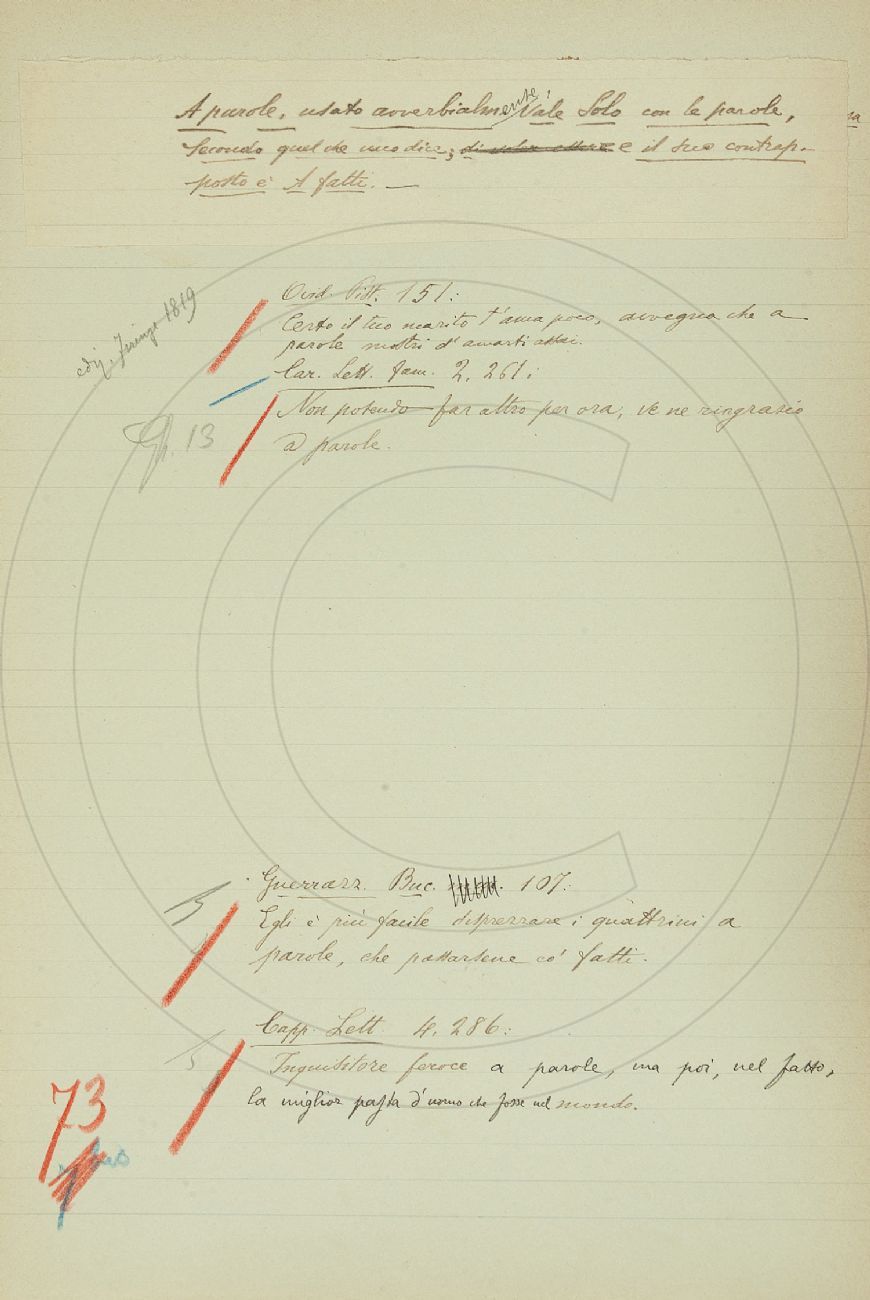 A parole, usato avverbialmente: Vale Solo con le parole,
Secondo quel che uno dice; e il suo contrap-
posto è A fatti. —
ediz. Firenze 1819
Ovid. Pist. 151:
Certo il tuo marito t'ama poco, avvegna che a
parole mostri d'amarti assai.
Car. Lett. fam. 2. 261:
Non potendo far altro per ora, ve ne ringrazio
a parole.
Gh. 13
Guerrazz. Buc. 107:
Egli è più facile disprezzare i quattrini a
parole, che passarsene co' fatti.
Capp. Lett. 4. 286:
Inquisitore feroce a parole, ma poi, nel fatto,
la miglior pasta d'uomo che fosse nel mondo.
73